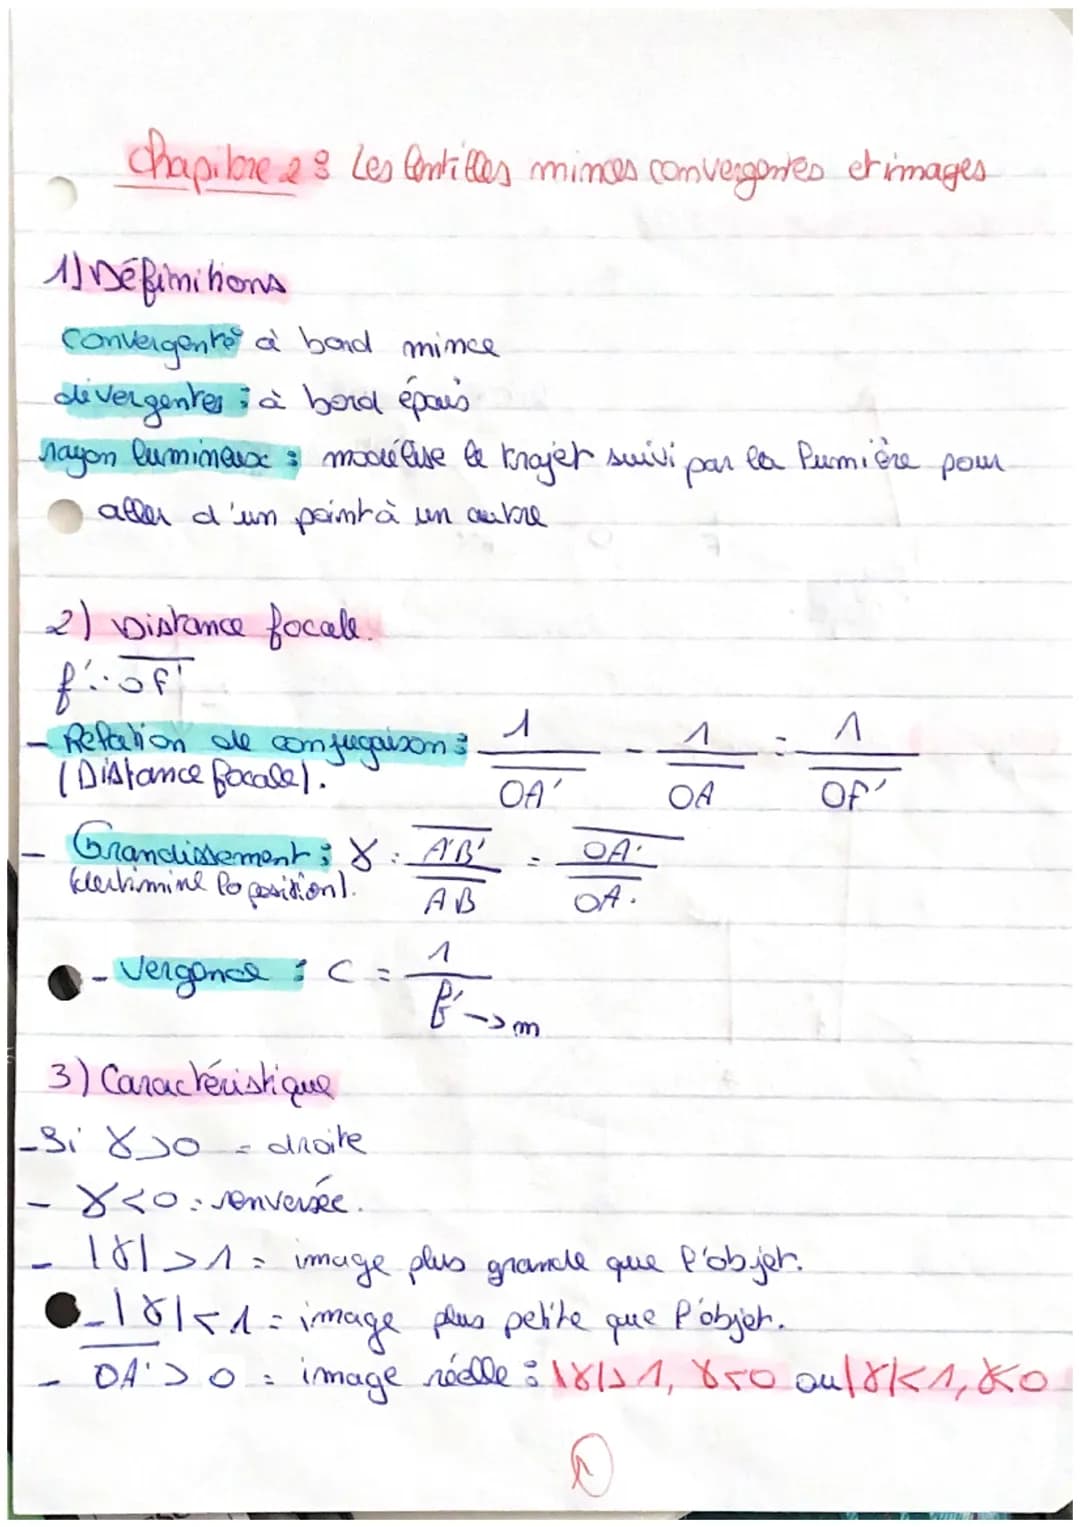 Chapitre 2 : Les lentilles minces convergentes et images
1) Définitions
Convergente : à bord mince
divergentes : à bord épais
rayon lumineux : modélise le trajet suivi par la lumière pour
aller d'un point à un autre
2) Distance focale.
f' : \overline{OF'}
- Relation de conjugaison : \frac{1}{\overline{OA'}} - \frac{1}{\overline{OA}} = \frac{1}{\overline{OF'}}
(Distance focale).
- Grandissement : γ = \frac{\overline{A'B'}}{\overline{AB}} = \frac{\overline{OA'}}{\overline{OA}}.
(détermine la position).
- Vergence : C = \frac{1}{f'} → m
3) Caractéristique
- Si γ > 0 = droite
- γ < 0 : renversée.
- |γ| > 1 = image plus grande que l'objet.
- |γ| < 1 = image plus petite que l'objet.
- \overline{OA'} > 0 = image réelle : |γ| > 1, γ < 0 ou |γ| < 1, γ < 0
1